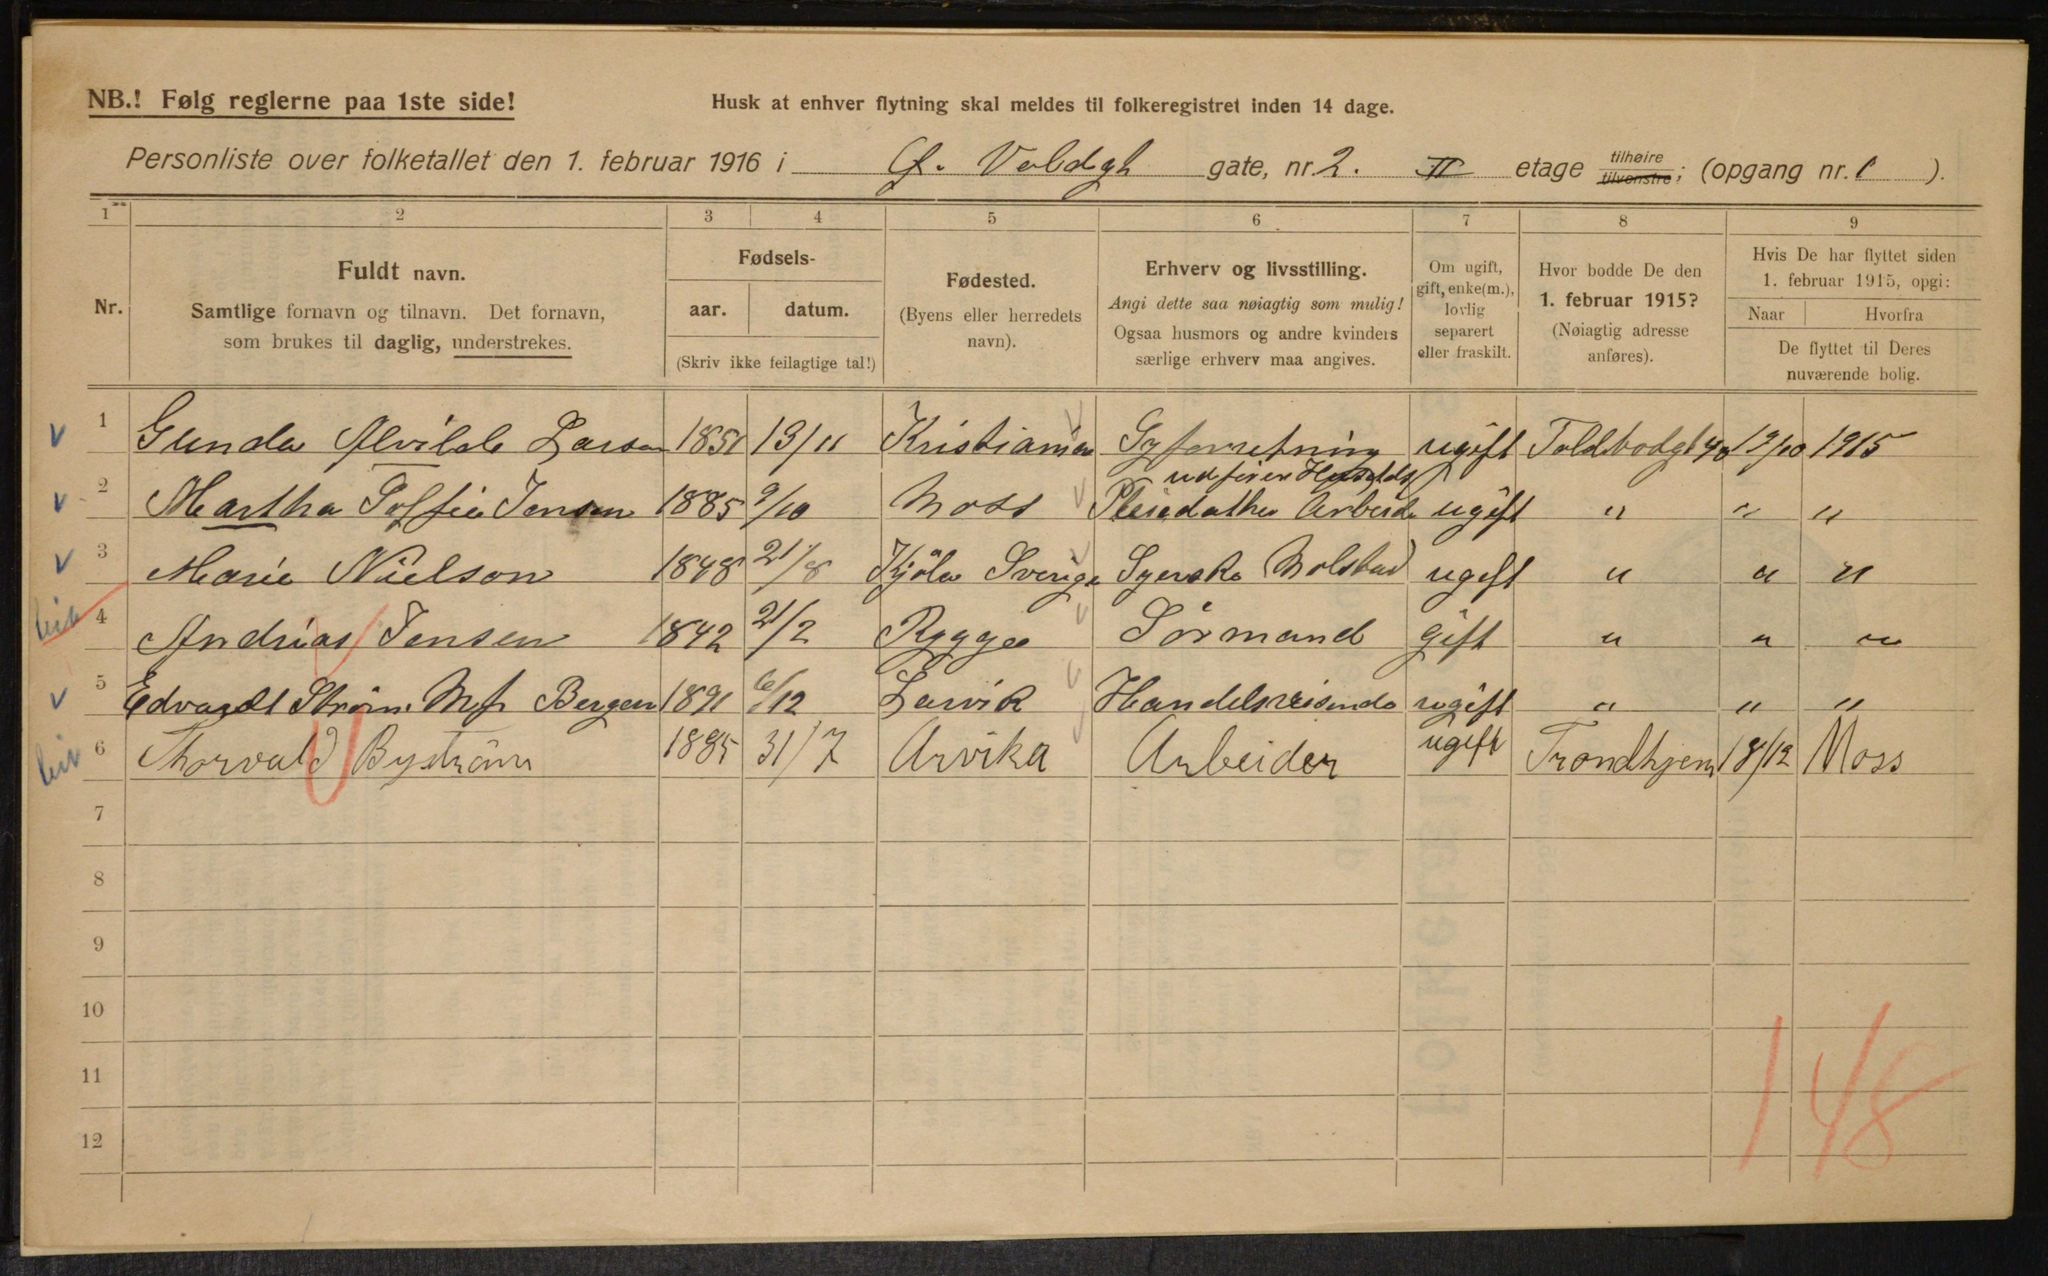 NB.! Følg reglerne paa 1ste side!
Husk at enhver flytning skal meldes til folkeregistret inden 14 dage.
Personliste over folketallet den 1. februar 1916 i Gl. Voldgt gate, nr. 2. II etage tilhøire tilvenstre; (opgang nr. 1 ).
1 2 3 4 5 6 7 8 9
Nr.
Fuldt navn.
Samtlige fornavn og tilnavn. Det fornavn,
som brukes til daglig, understrekes.
Fødsels-
aar. datum.
(Skriv ikke feilagtige tal!)
Fødested.
(Byens eller herredets
navn).
Erhverv og livsstilling.
Angi dette saa nøiagtig som mulig!
Ogsaa husmors og andre kvinders
særlige erhverv maa angives.
Om ugift,
gift, enke(m.),
lovlig
separert
eller fraskilt.
Hvor bodde De den
1. februar 1915?
(Nøiagtig adresse
anføres).
Hvis De har flyttet siden
1. februar 1915, opgi:
Naar Hvorfra
De flyttet til Deres
nuværende bolig.
1 Gunda Alvilde Larsen 1851 13/11 Kristiania Syforretning ugift Toldbodgt 40 12/10 1915
2 Martha Soffie Jensen 1885 9/10 Moss udfører Arbeide ugift " " "
3 Marie Nielson 1848 21/8 Sverige Syerske ugift " " "
4 Andrias Jensen 1842 21/2 Rygge Sørmand gift " " "
5 Edvardt Strøm Bergen 1891 6/12 Larvik Handelsreisende ugift " " "
6 Thorvald Byström 1885 31/7 Arvika Arbeider ugift Trondhjem 18/12 Moss
7
8
9
10
11
12
148